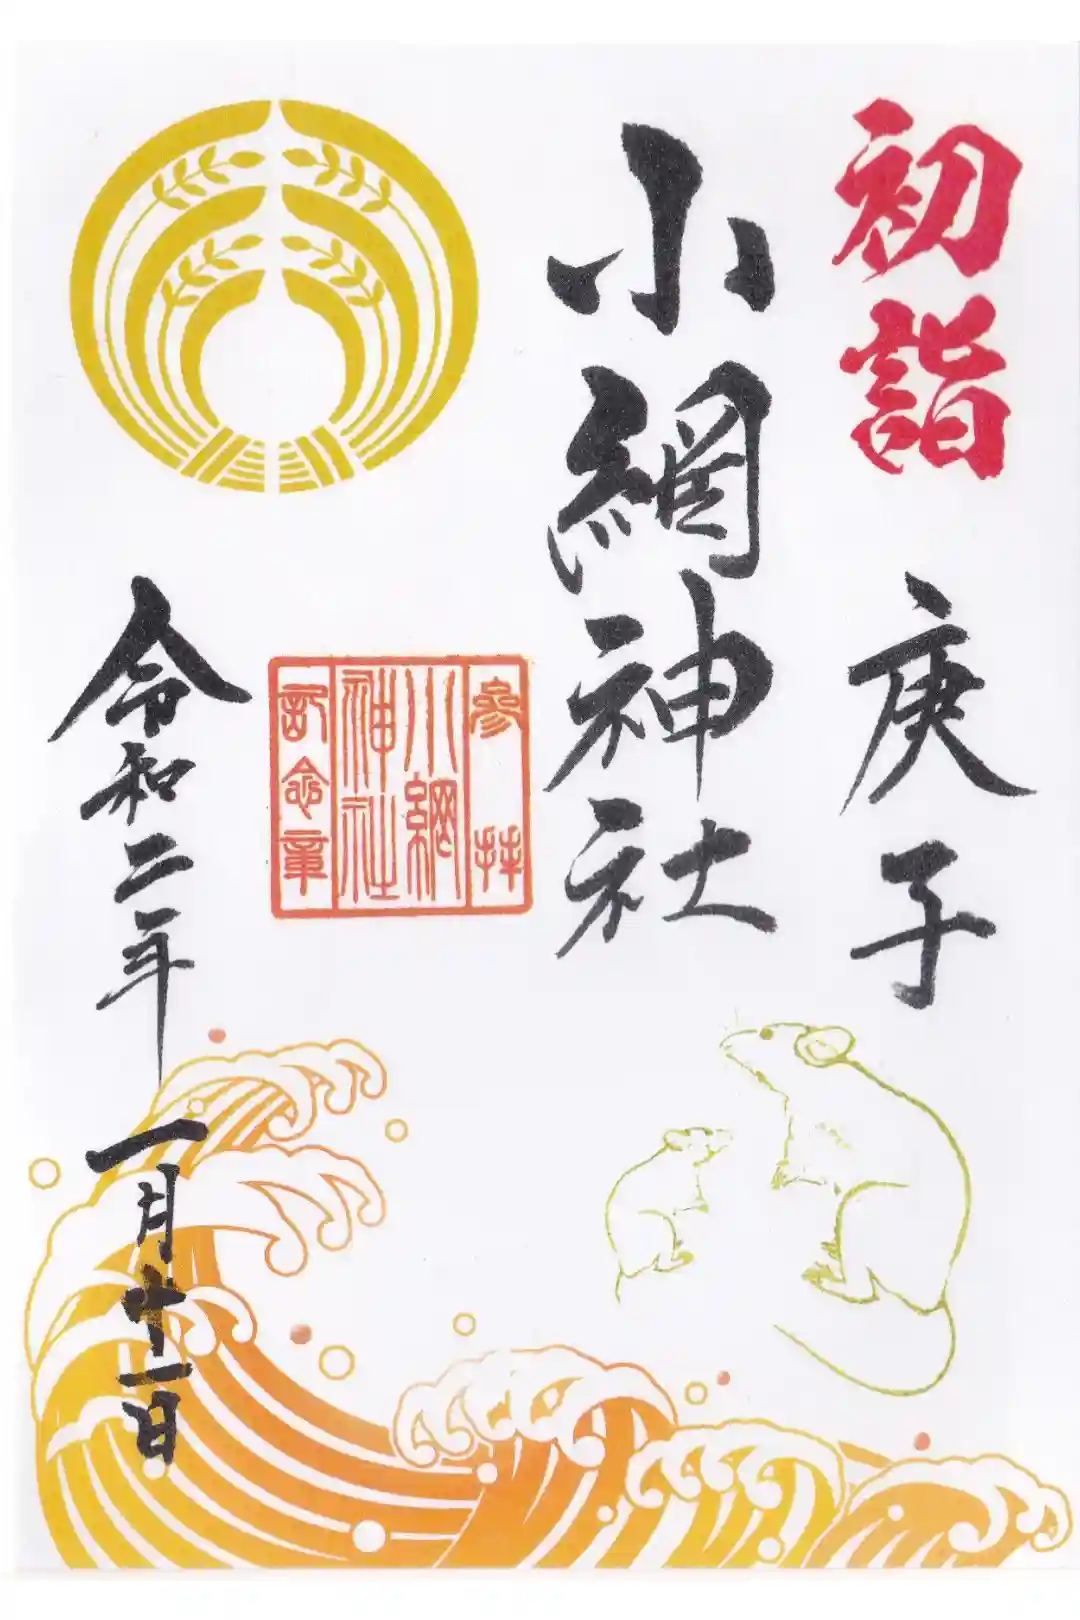 初詣
庚子
小網神社
參拝
小網
神社
記念章
令和二年
一月十一日